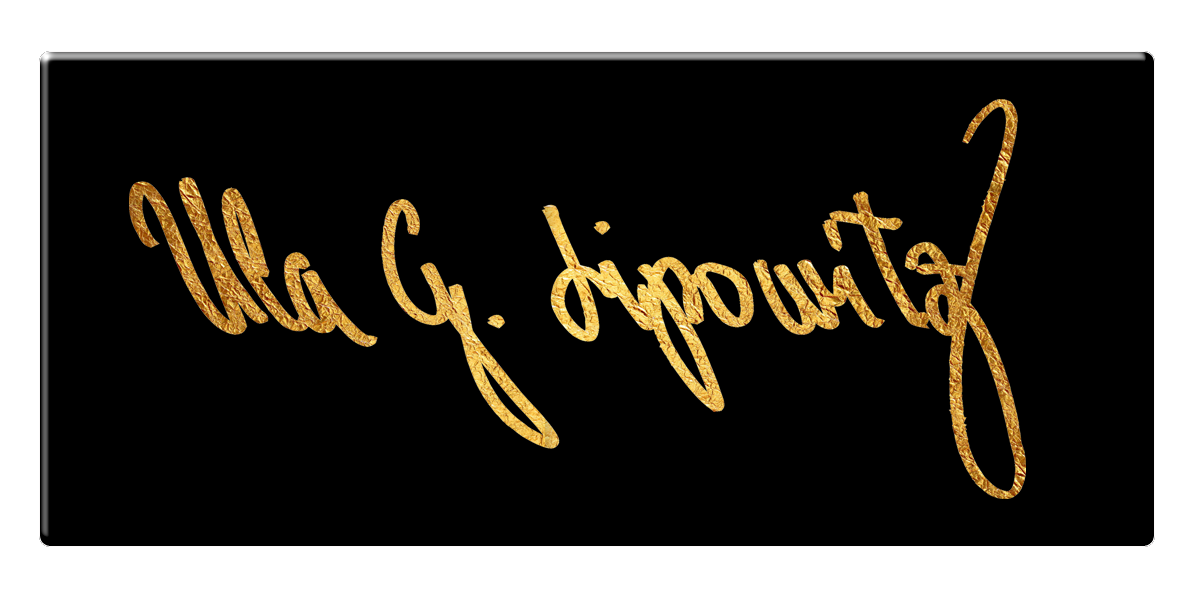 Ula G. Lipowitz